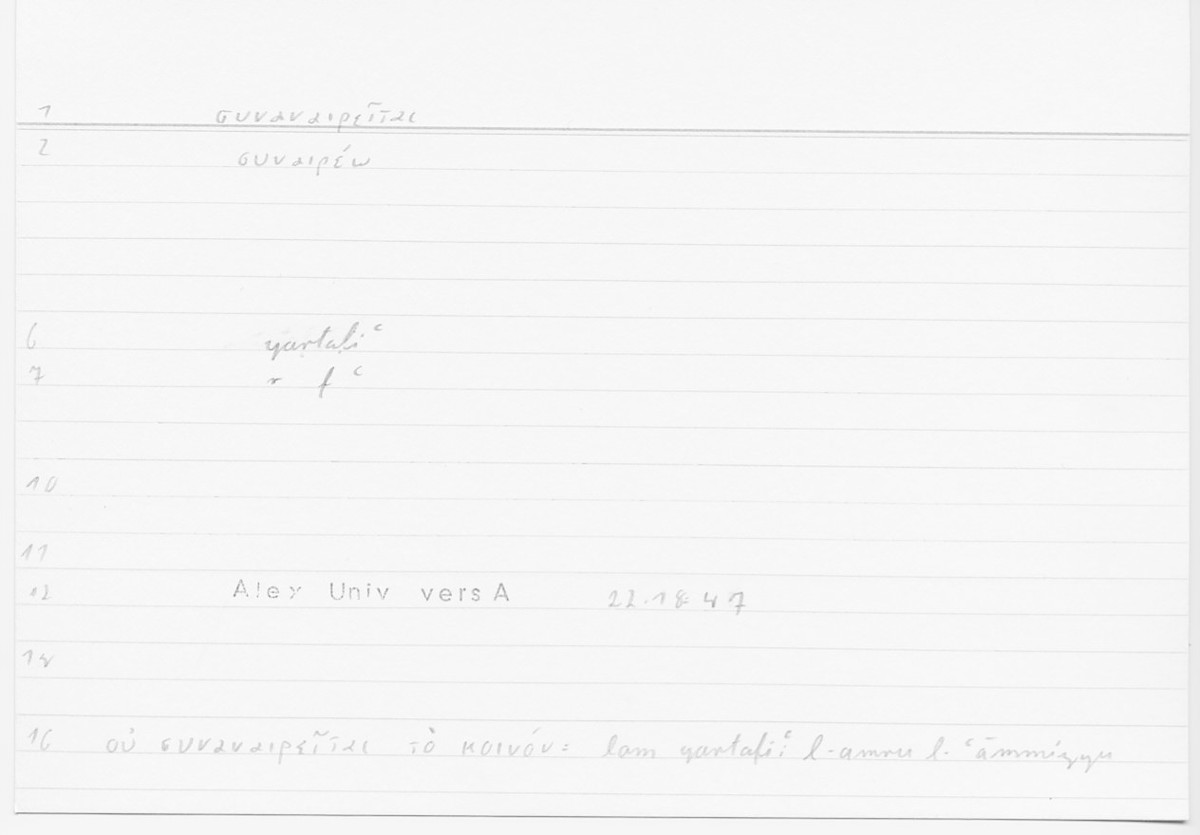 1 συναναιρεῖται
2 συναιρέω
6 yartafiʿ
7 r f ʿ
10
11
12 Alex Univ vers A 22.18 47
14
16 οὐ συναναιρεῖται τὸ κοινόν: lam yartafiʿi l-amru l-ʿāmmiyyu